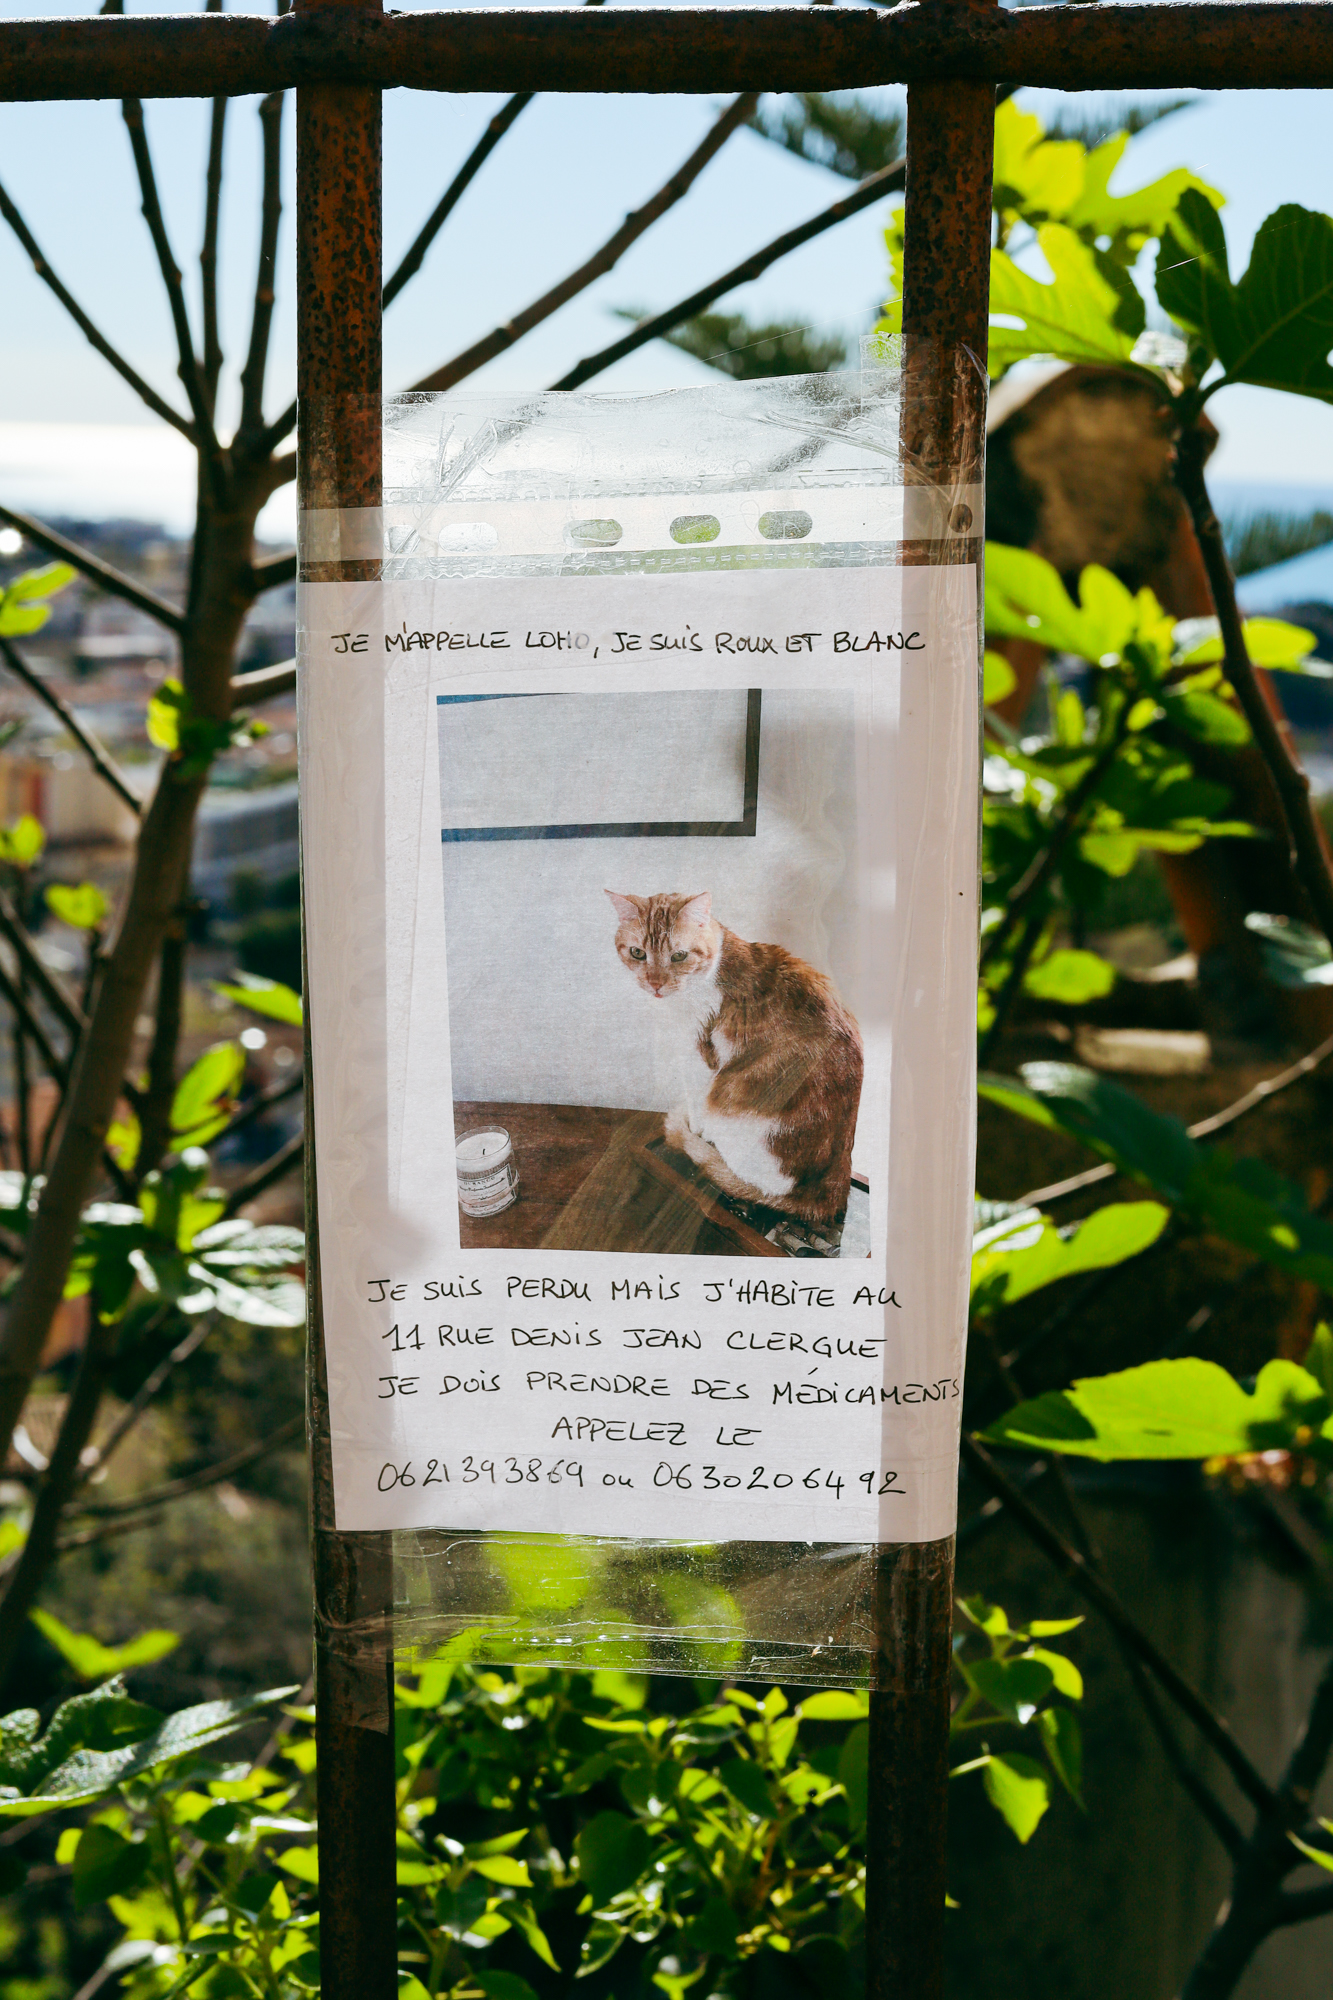 JE M'APPELLE LOHO, JE SUIS ROUX ET BLANC
JE SUIS PERDU MAIS J'HABITE AU
11 RUE DENIS JEAN CLERGUE
JE DOIS PRENDRE DES MÉDICAMENTS
APPELEZ LE
0621393869 ou 0630206492